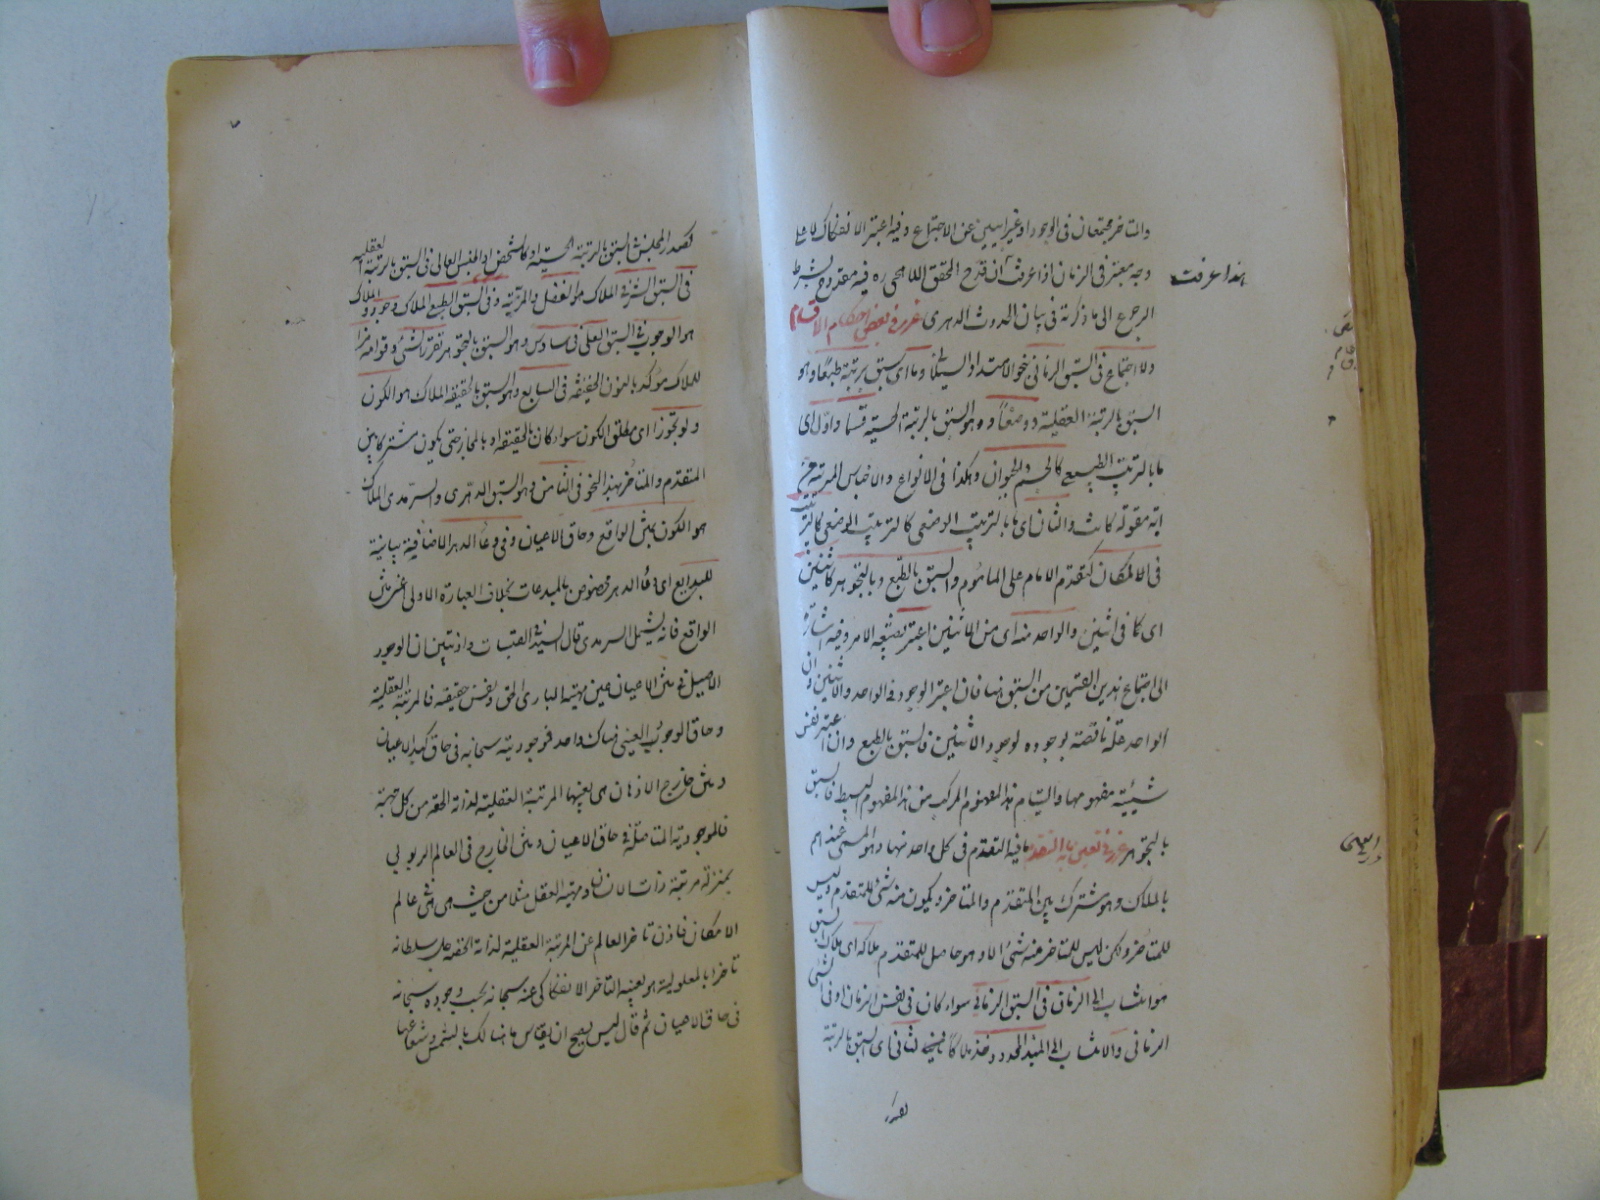 والمتاخر مجتمعان فى الوجود او غير ابيين عن الاجتماع وفيه اعتبر الانفكاك لا على
وجه معتبر فى الزمان اذا عرفت ان قدح المحقق اللاهجى ره فيه مقدوح بشرط
هذا عرفت
الرجوع الى ما ذكرته فى بيان الحدوث الدهرى غرر فى بعض احكام الاقسام
ولا اجتماع فى السبق الزمانى نحو الامتداد السيلانى وما اى سبق برتبة طبعا وهو
السبق بالرتبة العقلية ووضعا وهو السبق بالرتبة الحسية قسما واول اى
ما بالترتيب الطبيعى كالجسم والحيوان وهكذا فى الانواع والاجناس المرتبة فى
اية مقولة كانت والثانى اى ما بالترتيب الوضعى كالترتيب الوضعى كالترتيب
فى الامكان كتقدم الامام على الماموم والسبق بالطبع وبالتجوهر كاثنين
اى كما فى اثنين والواحد منه اى من الاثنين اعتبر بضعة الامر وفيه اشارة
الى اجتماع هذين القسمين من السبق فيها فان اعتبر الوجود فى الواحد والاثنين وان
الواحد علة ناقصة بوجوده لوجود الاثنين فالسبق بالطبع وان اعتبر نفس
شيئية مفهومها والتيام هذا المفهوم المركب من هذا المفهوم البسيط فالسبق
بالتجوهر غرر فى تعيين ما فيه التقدم ما فيه التقدم فى كل واحد منها وهو المسمى عندهم
بالملاك وهو مشترك بين المتقدم والمتاخر ويكون منه شئ للمتقدم وليس
للمتاخر ولكن ليس للمتاخر منه شئ الا وهو حاصل للمتقدم ملاكه اى ملاك السبق
هو انتساب الى الزمان فى السبق الزمانى سواء كان فى نفس الزمان او فى الشئ
الزمانى والانتساب الى المبدء المحدود وخذ ملاكا لثانى اى السبق بالرتبة
كصدر
كصدر المجلس فى السبق بالرتبة الحسية او كالشخص او الجنس العالى فى السبق بالرتبة العقلية
فى السبق الشرفى الملاك هو الفضل والمزية وفى السبق الطبع الملاك وجود والملاك
هو الوجوب فى السبق العلى فى سادس وهو السبق بالتجوهر تقرر الشئ وقوامه
للملاك موكد بالنون الخفيفة فى السابع وهو السبق بالحقيقة الملاك هو الكون
ولو تجوزا اى مطلق الكون سواء كان بالحقيقة او بالمجاز حتى يكون مشتركا بين
المتقدم والمتاخر بهذا النحو فى الثامن وهو السبق الدهرى والسرمدى الملاك
هو الكون بمتن الواقع وحاق الاعيان وفى وعاء الدهر الاضافية بيانية
للبدايع اى وعاء الدهر مخصوص بالمبدعات بخلاف العبارة الاولى اعنى متن
الواقع فانه يشمل السرمدى قال السيد فى القبسات واذ تبين ان الوجود
الاصيل فى متن الاعيان عين مهية البارى الحق ونفس حقيقته فالمرتبة العقلية
وحاق الوجود العينى هناك واحد فموجوديته سبحانه فى حاق كبد الاعيان
ومتن خارج الاذهان هى بعينها المرتبة العقلية لذاته الحقة من كل جهة
فالموجودية المتاصلة فى حاق الاعيان ومتن الخارج فى العالم الربوبى
بمنزلة مرتبة ذات الانسان ومهية العقل مثلا من حيث هى هى فى عالم
الامكان فاذن تاخر العالم عن المرتبة العقلية لذاته الحقة جل سلطانه
تاخرا بالمعلولية هو بعينه التاخر الانفكاكى عنه سبحانه بحسب وجوده سبحانه
فى حاق الاعيان ثم قال ليس يصح ان يقاس ما هنالك بالشمس وشعاعها